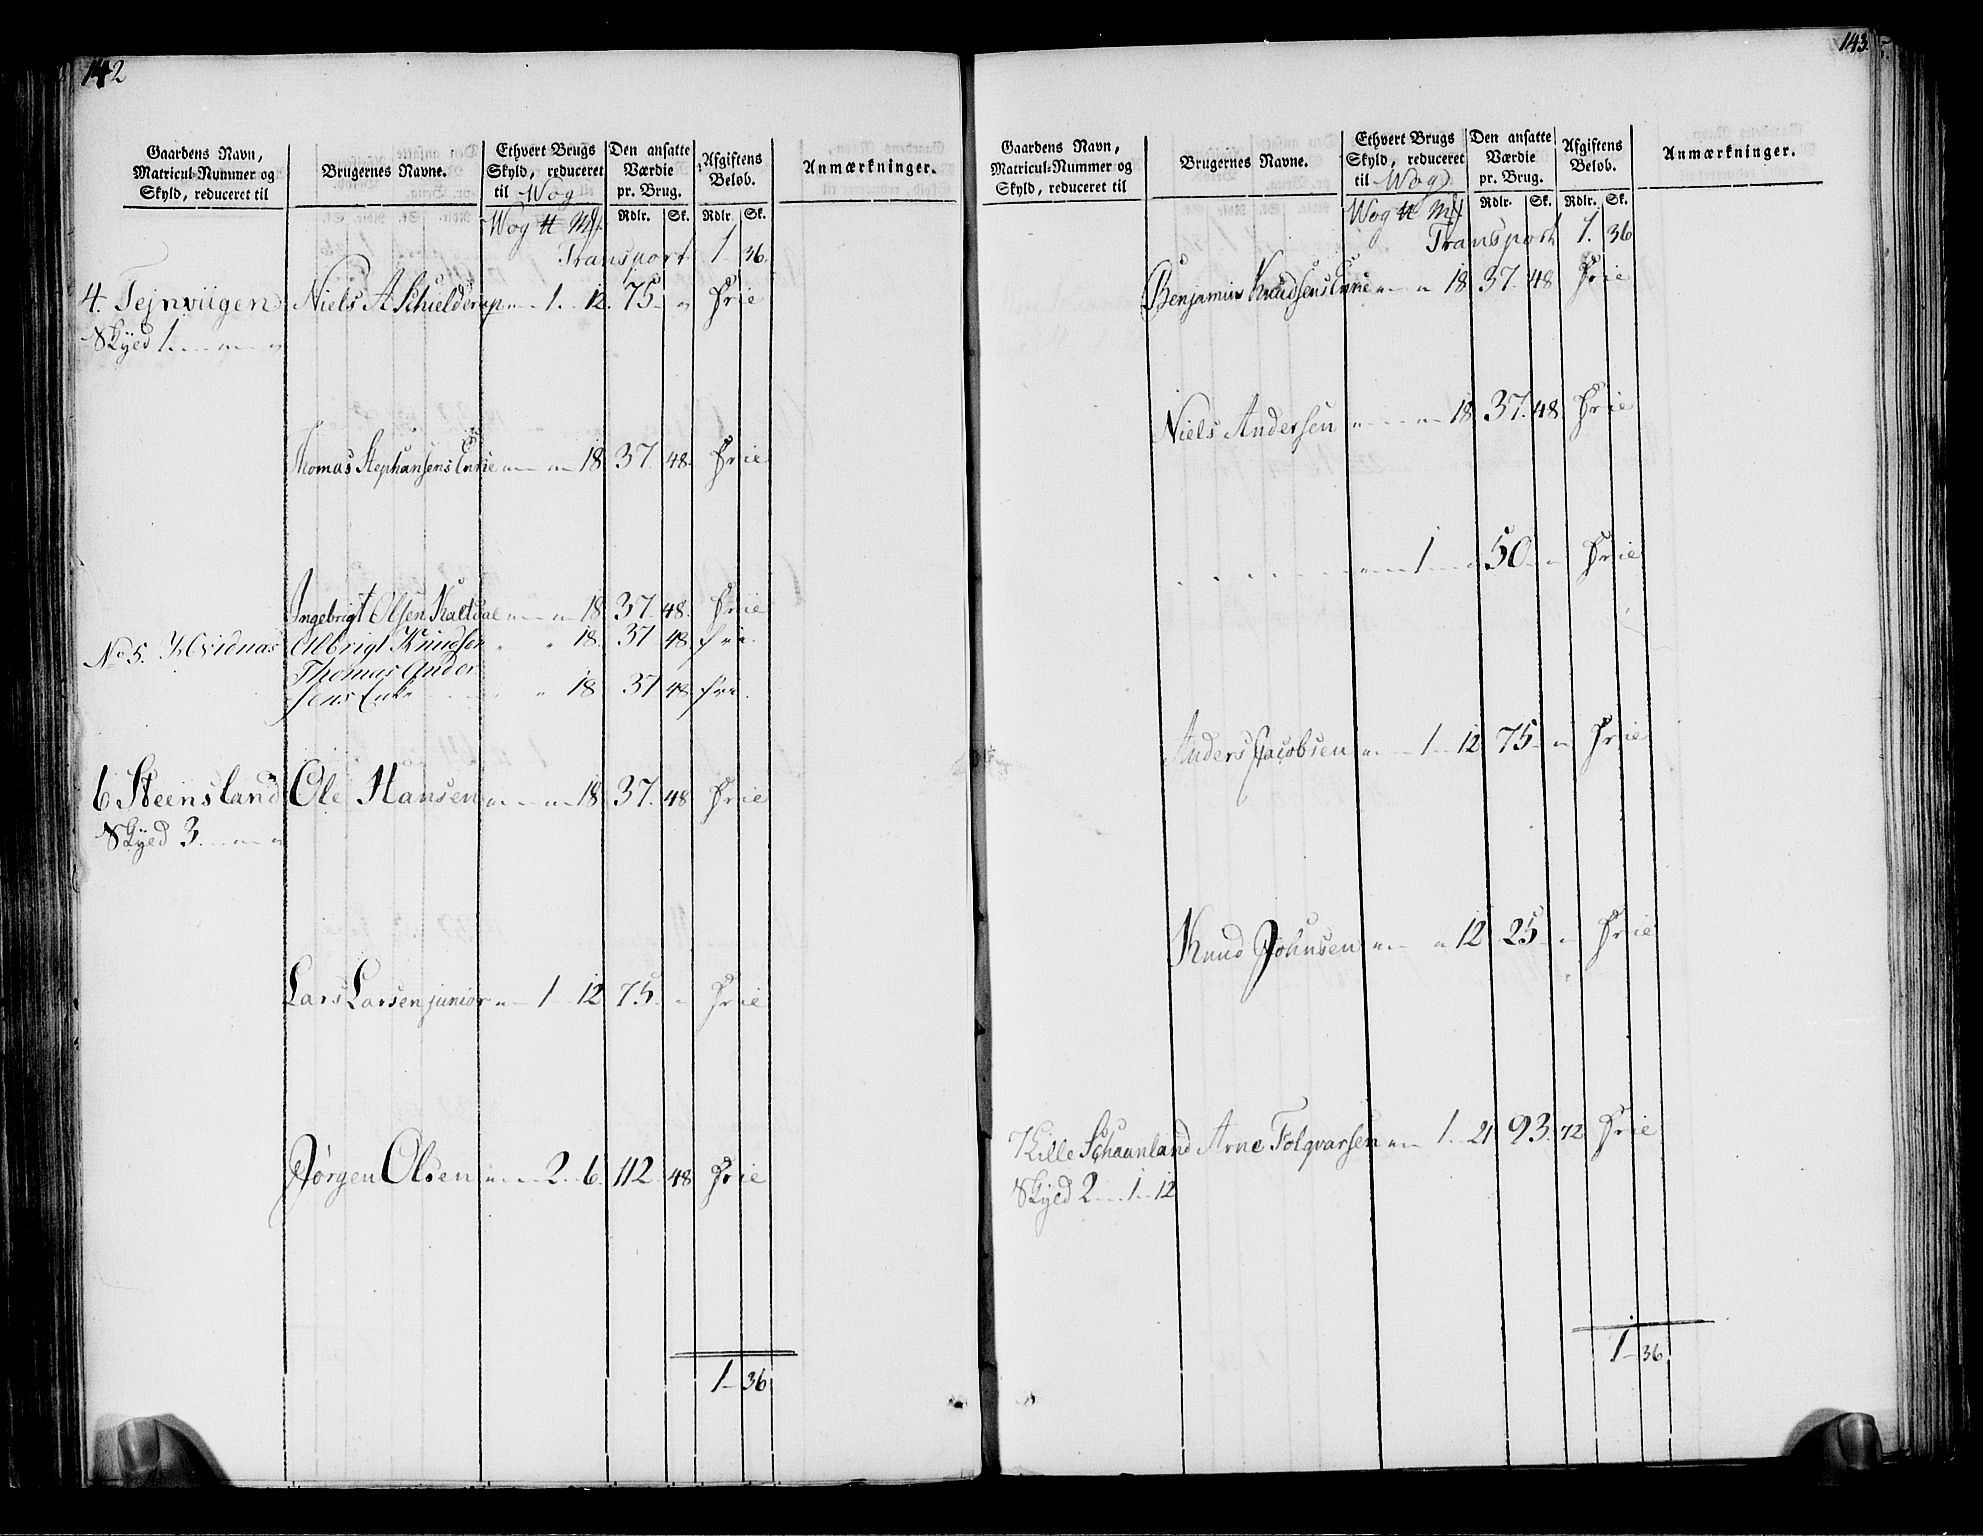 142
Gaardens Navn,
Matricul-Nummer og
Skyld, reduceret til
Brugernes Navne.
Ethvert Brugs
Skyld, reduceret
til Wog
Den ansatte
Værdie
pr. Brug.
Afgiftens
Beløb.
Anmærkninger.
Wog ℔ Mk Rdlr. Sk. Rdlr. Sk.
Transport 1 36
4. Tejnviigen Niels A Schielderup 1 12 75 Frie
Skyed 1
Thomas Stephansens Enkie 18 37 48 Frie
Ingebrigt Olsen Kaltdal 18 37 48 Frie
No 5. Hvidnæs Albrigt Knudsen 18. 37 48 frie
Thomas Ander
sens Enke 18 37 48 frie.
6 Steensland Ole Hansen 18 37 48 Frie
Skyed 3
Lars Larsen junior 1 12 75 Frie
Jørgen Olsen 2 6 112 48 Frie
1 36
143
Gaardens Navn,
Matricul-Nummer og
Skyld, reduceret til
Brugernes Navne.
Ethvert Brugs
Skyld, reduceret
til Wog
Den ansatte
Værdie
pr. Brug.
Afgiftens
Beløb.
Anmærkninger.
Wog ℔ Mk Rdlr. Sk. Rdlr. Sk.
Transport 1. 36
Benjamin Knudsens Enkie 18 37 48 Frie
Niels Andersen 18 37 48 Frie
1 50 Frie
Anders Jacobsen 1 12 75 Frie
Knud Johnsen 12 25 Frie
7 Kille Schaanland Arne Folqvarsen 1 21 93 72 Frie
Skyed 2 1 12
1 36